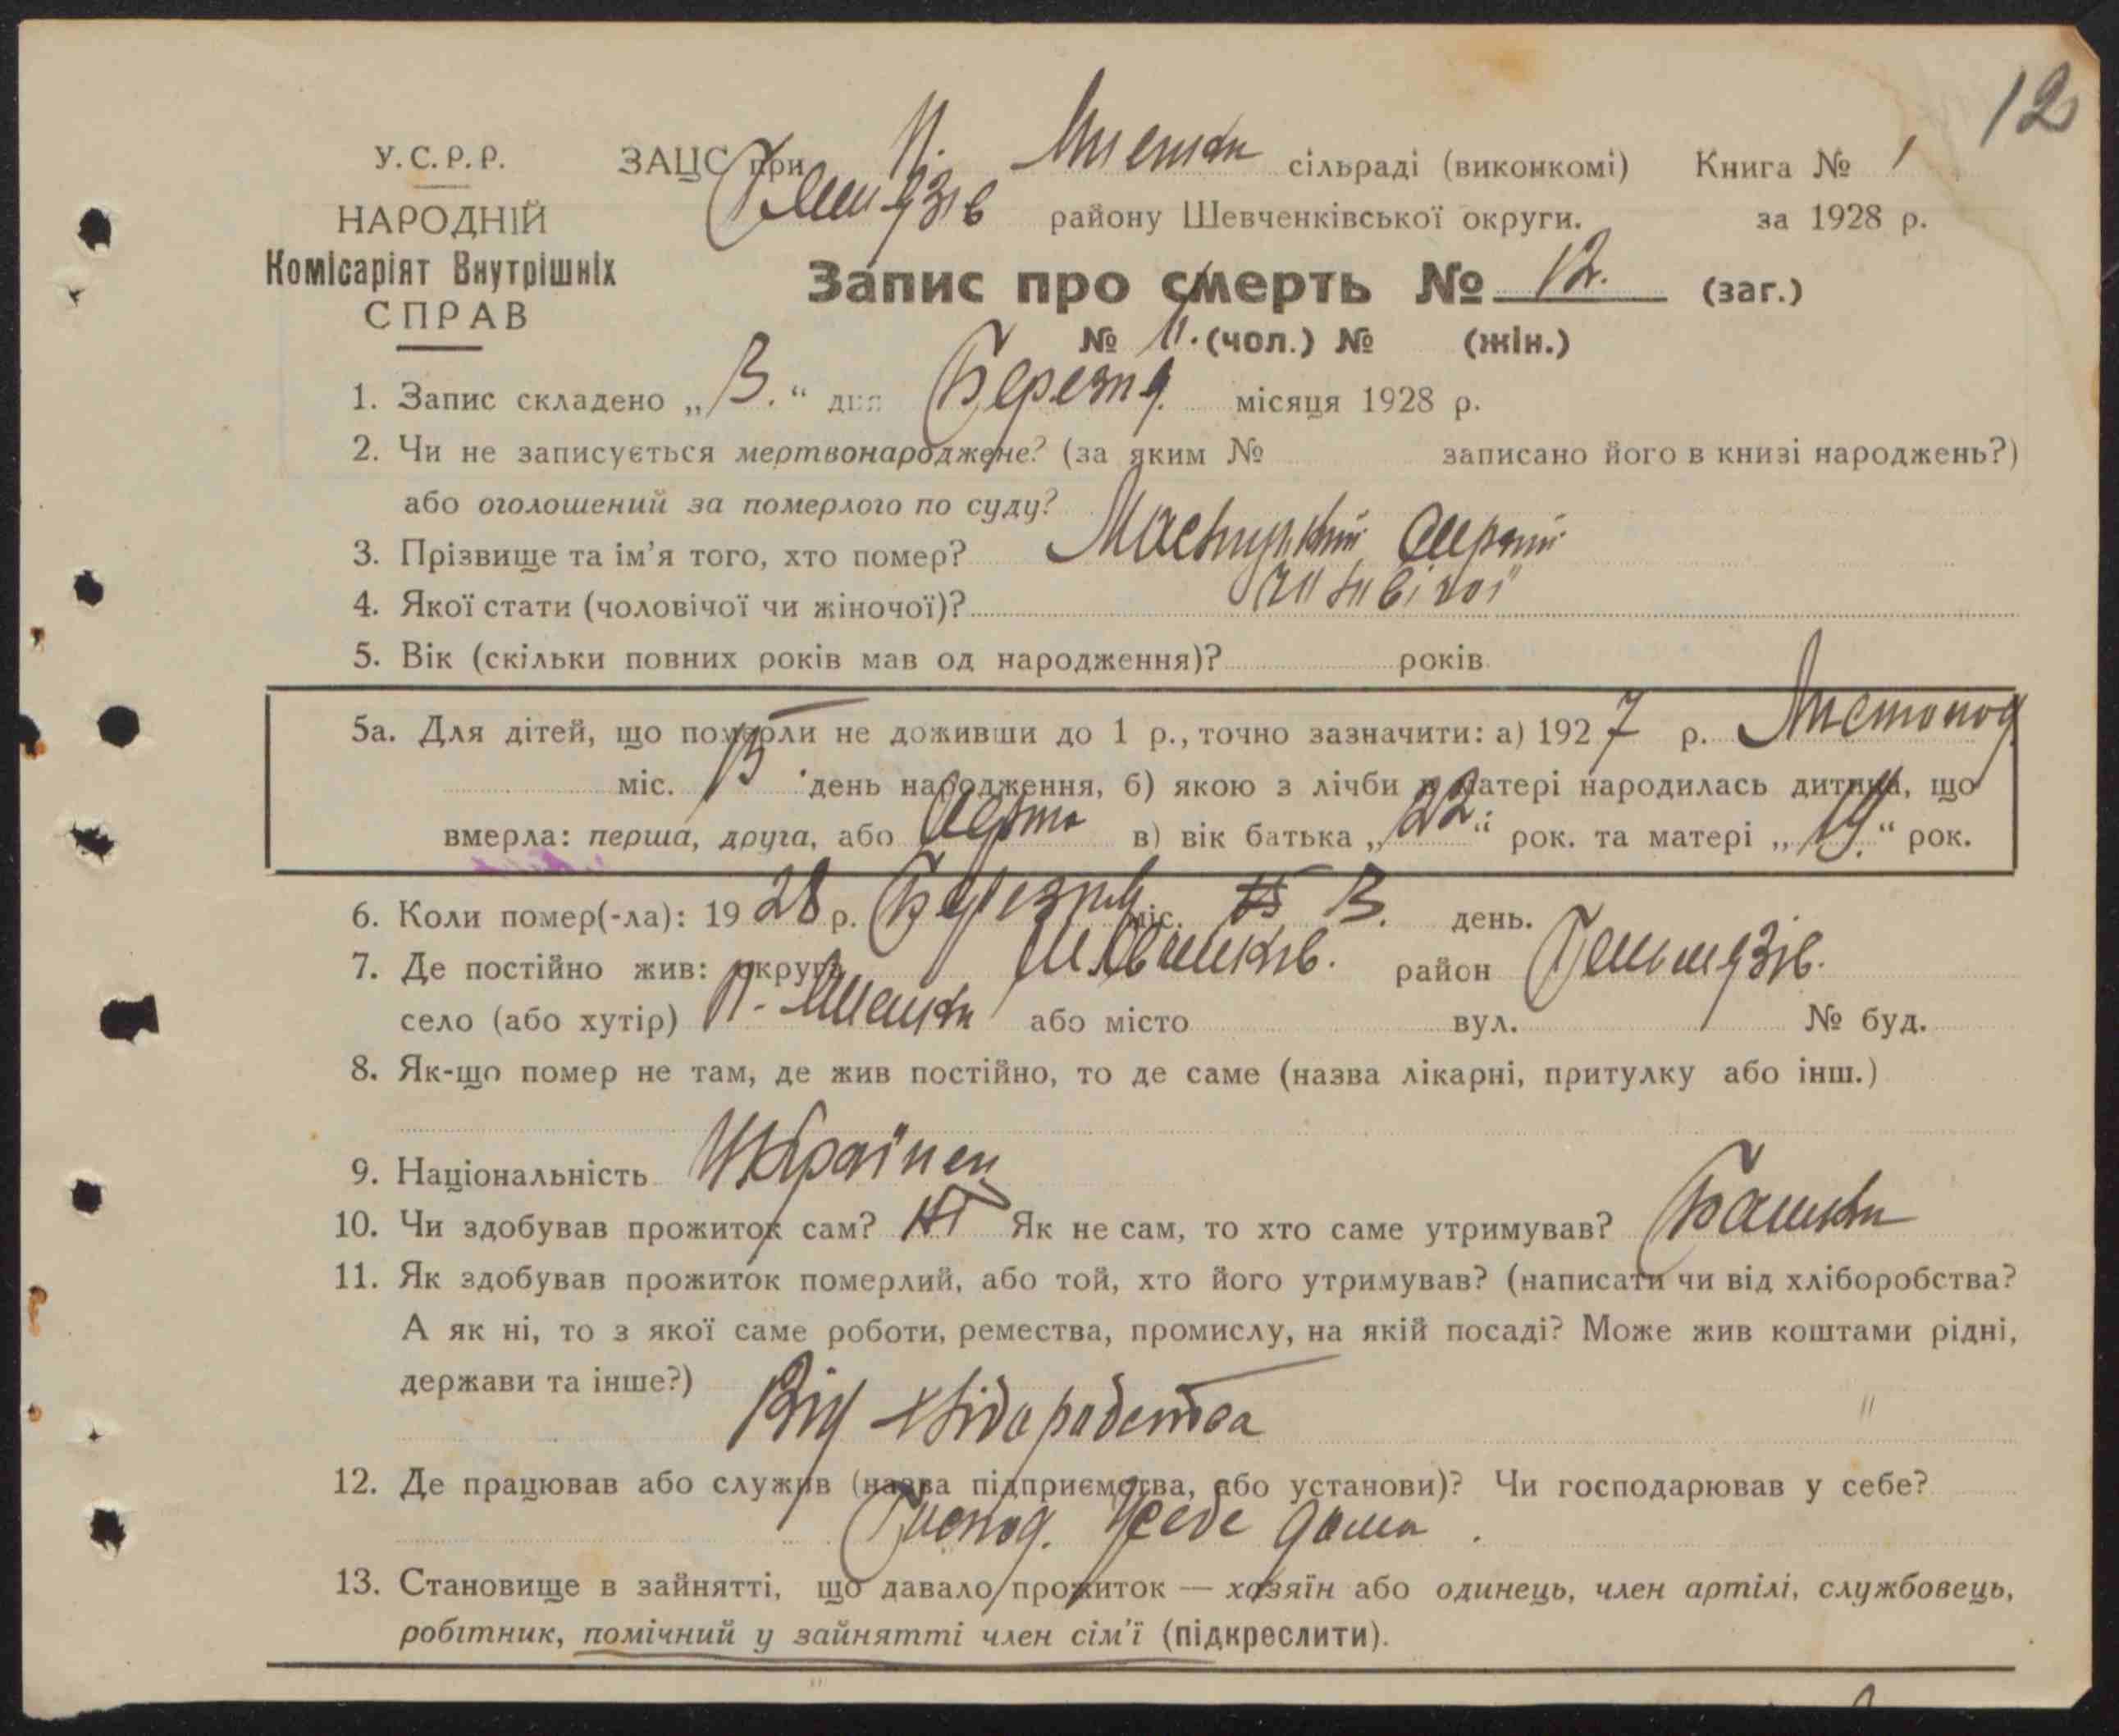 12
У.С.Р.Р.
ЗАЦС при П. сільраді (виконкомі) Книга № 1
НАРОДНІЙ
району Шевченківської округи. за 1928 р.
Комісаріят Внутрішніх
СПРАВ
Запис про смерть № 12. (заг.)
№ 11. (чол.) № (жін.)
1. Запис складено „3.“ дня Березня місяця 1928 р.
2. Чи не записується мертвонароджене? (за яким № записано його в книзі народжень?)
або оголошений за померлого по суду?
3. Прізвище та ім'я того, хто помер?
4. Якої стати (чоловічої чи жіночої)? чоловічої
5. Вік (скільки повних років мав од народження)? років
5а. Для дітей, що померли не доживши до 1 р., точно зазначити: а) 1927 р. Листопад
міс. день народження, б) якою з лічби в матері народилась дитина, що
вмерла: перша, друга, або перша в) вік батька „22.“ рок. та матері „19.“ рок.
6. Коли помер(-ла): 1928 р. Березня міс. 3. день.
7. Де постійно жив: округа Шевченків. район
село (або хутір) або місто вул. № буд.
8. Як-що помер не там, де жив постійно, то де саме (назва лікарні, притулку або інш.)
9. Національність Українец
10. Чи здобував прожиток сам? Ні Як не сам, то хто саме утримував? Батьки
11. Як здобував прожиток померлий, або той, хто його утримував? (написати чи від хліборобства?
А як ні, то з якої саме роботи, ремества, промислу, на якій посаді? Може жив коштами рідні,
держави та інше?)
Від хліборобства
12. Де працював або служив (назва підприємства, або установи)? Чи господарював у себе?
Господ. у себе дома.
13. Становище в зайнятті, що давало прожиток — хазяїн або одинець, член артілі, службовець,
робітник, помічний у зайнятті член сім'ї (підкреслити).